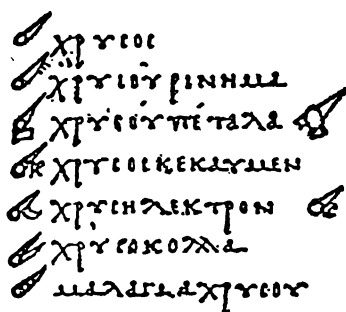 χρυσος
χρυσού ρινημα
χρυσού πέταλα
χρυσος κεκαυμεν
χρυσηλεκτρον
χρυσοκολλα
μαλαγμα χρυσου